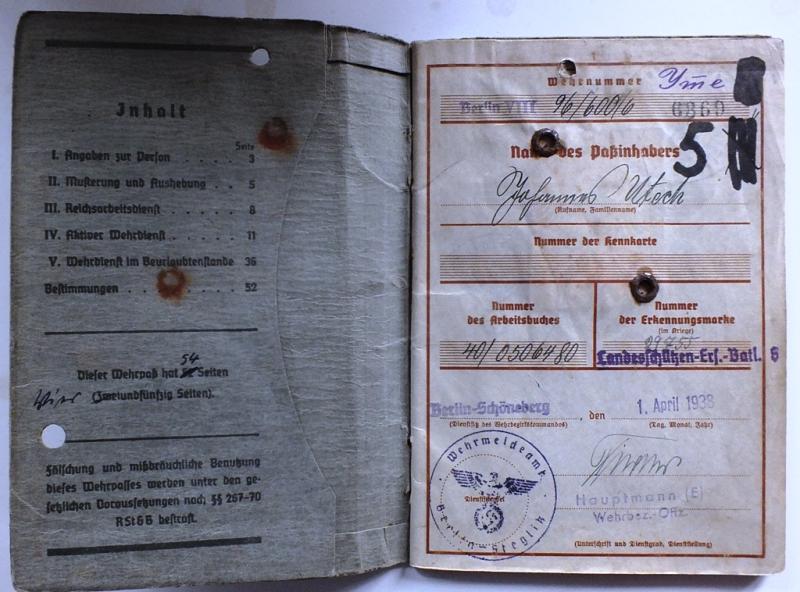 Inhalt
Seite
I. Angaben zur Person . . . . . 3
II. Musterung und Aushebung . . 5
III. Reichsarbeitsdienst . . . . . . 8
IV. Aktiver Wehrdienst . . . . . . 11
V. Wehrdienst im Beurlaubtenstande 36
Bestimmungen . . . . . . . . 52
54
Dieser Wehrpaß hat Seiten
Vier (Zweiundfünfzig Seiten).
Fälschung und mißbräuchliche Benutzung
dieses Wehrpasses werden unter den ge-
setzlichen Voraussetzungen nach §§ 267-70
RStGB bestraft.
Wehrnummer
Berlin VIII 96/600/6 6869
Name des Paßinhabers 5
Johannes Utech
(Rufname, Familienname)
Nummer der Kennkarte
Nummer
des Arbeitsbuches
40/0506480
Nummer
der Erkennungsmarke
(im Kriege)
29755
Landesschützen-Ers.-Batl. 6
Berlin-Schöneberg den 1. April 1938
(Dienstsitz des Wehrbezirkskommandos) (Tag, Monat, Jahr)
Wehrmeldeamt
Dienstsiegel
Berlin-Steglitz
Hauptmann (E)
Wehrbez.-Offz.
(Unterschrift und Dienstgrad, Dienststellung)